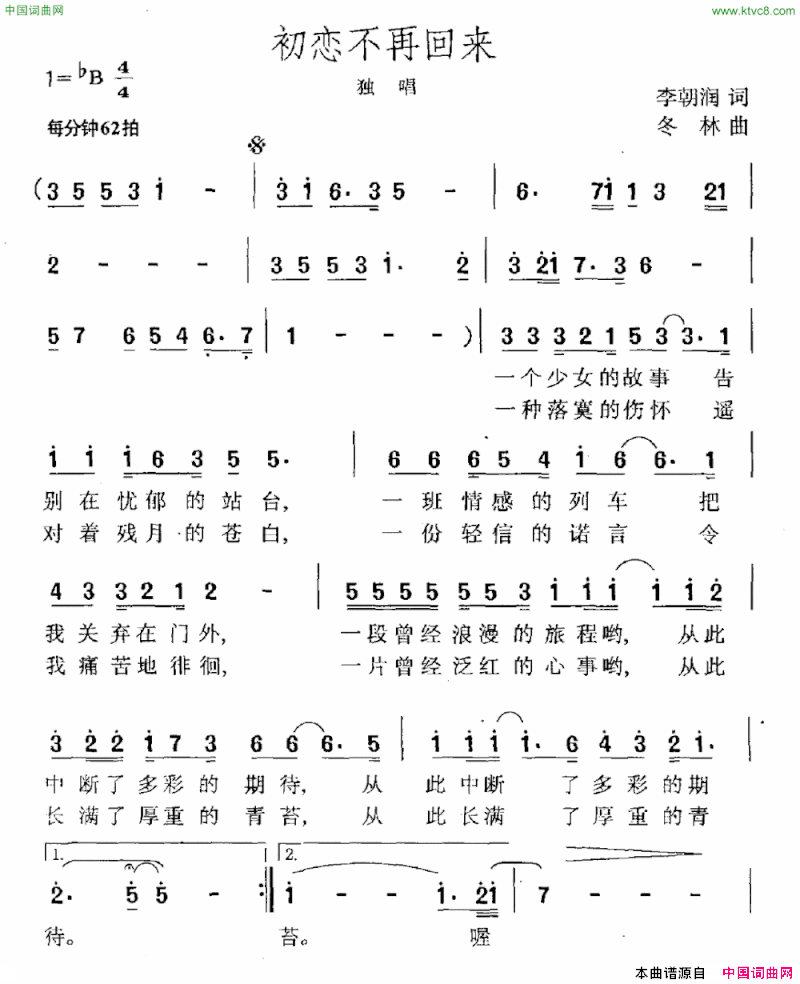 中国词曲网
www.ktvc8.com
初恋不再回来
独 唱
1=♭B 4/4
李朝润 词
冬 林 曲
每分钟62拍
(3 5 5 3 i - | 3 i 6. 3 5 - | 6. 7i i 3 21 |
2 - - - | 3 5 5 3 i. 2 | 3 2i 7. 3 6 - |
5 7 6 5 4 6. 7 | 1 - - - ) | 3 3 3 2 1 5 3 3. 1
一个少女的故事 告
一种落寞的伤怀 遥
i i i 6 3 5 5. | 6 6 6 5 4 i 6 6. 1
别在忧郁的站台, 一班情感的列车 把
对着残月的苍白, 一份轻信的诺言 令
4 3 3 2 1 2 - | 5 5 5 5 5 5 3 i i i i i 2
我关弃在门外, 一段曾经浪漫的旅程哟, 从此
我痛苦地徘徊, 一片曾经泛红的心事哟, 从此
3 2 2 i 7 3 6 6 6. 5 | i i i i i. 6 4 3 2 i.
中断了多彩的期待, 从 此中断 了多彩的期
长满了厚重的青苔, 从 此长满 了厚重的青
1. 2.
2. 5 5 - :| i - i. 2i | 7 - - -
待。 苔。 喔
本曲谱源自 中国词曲网